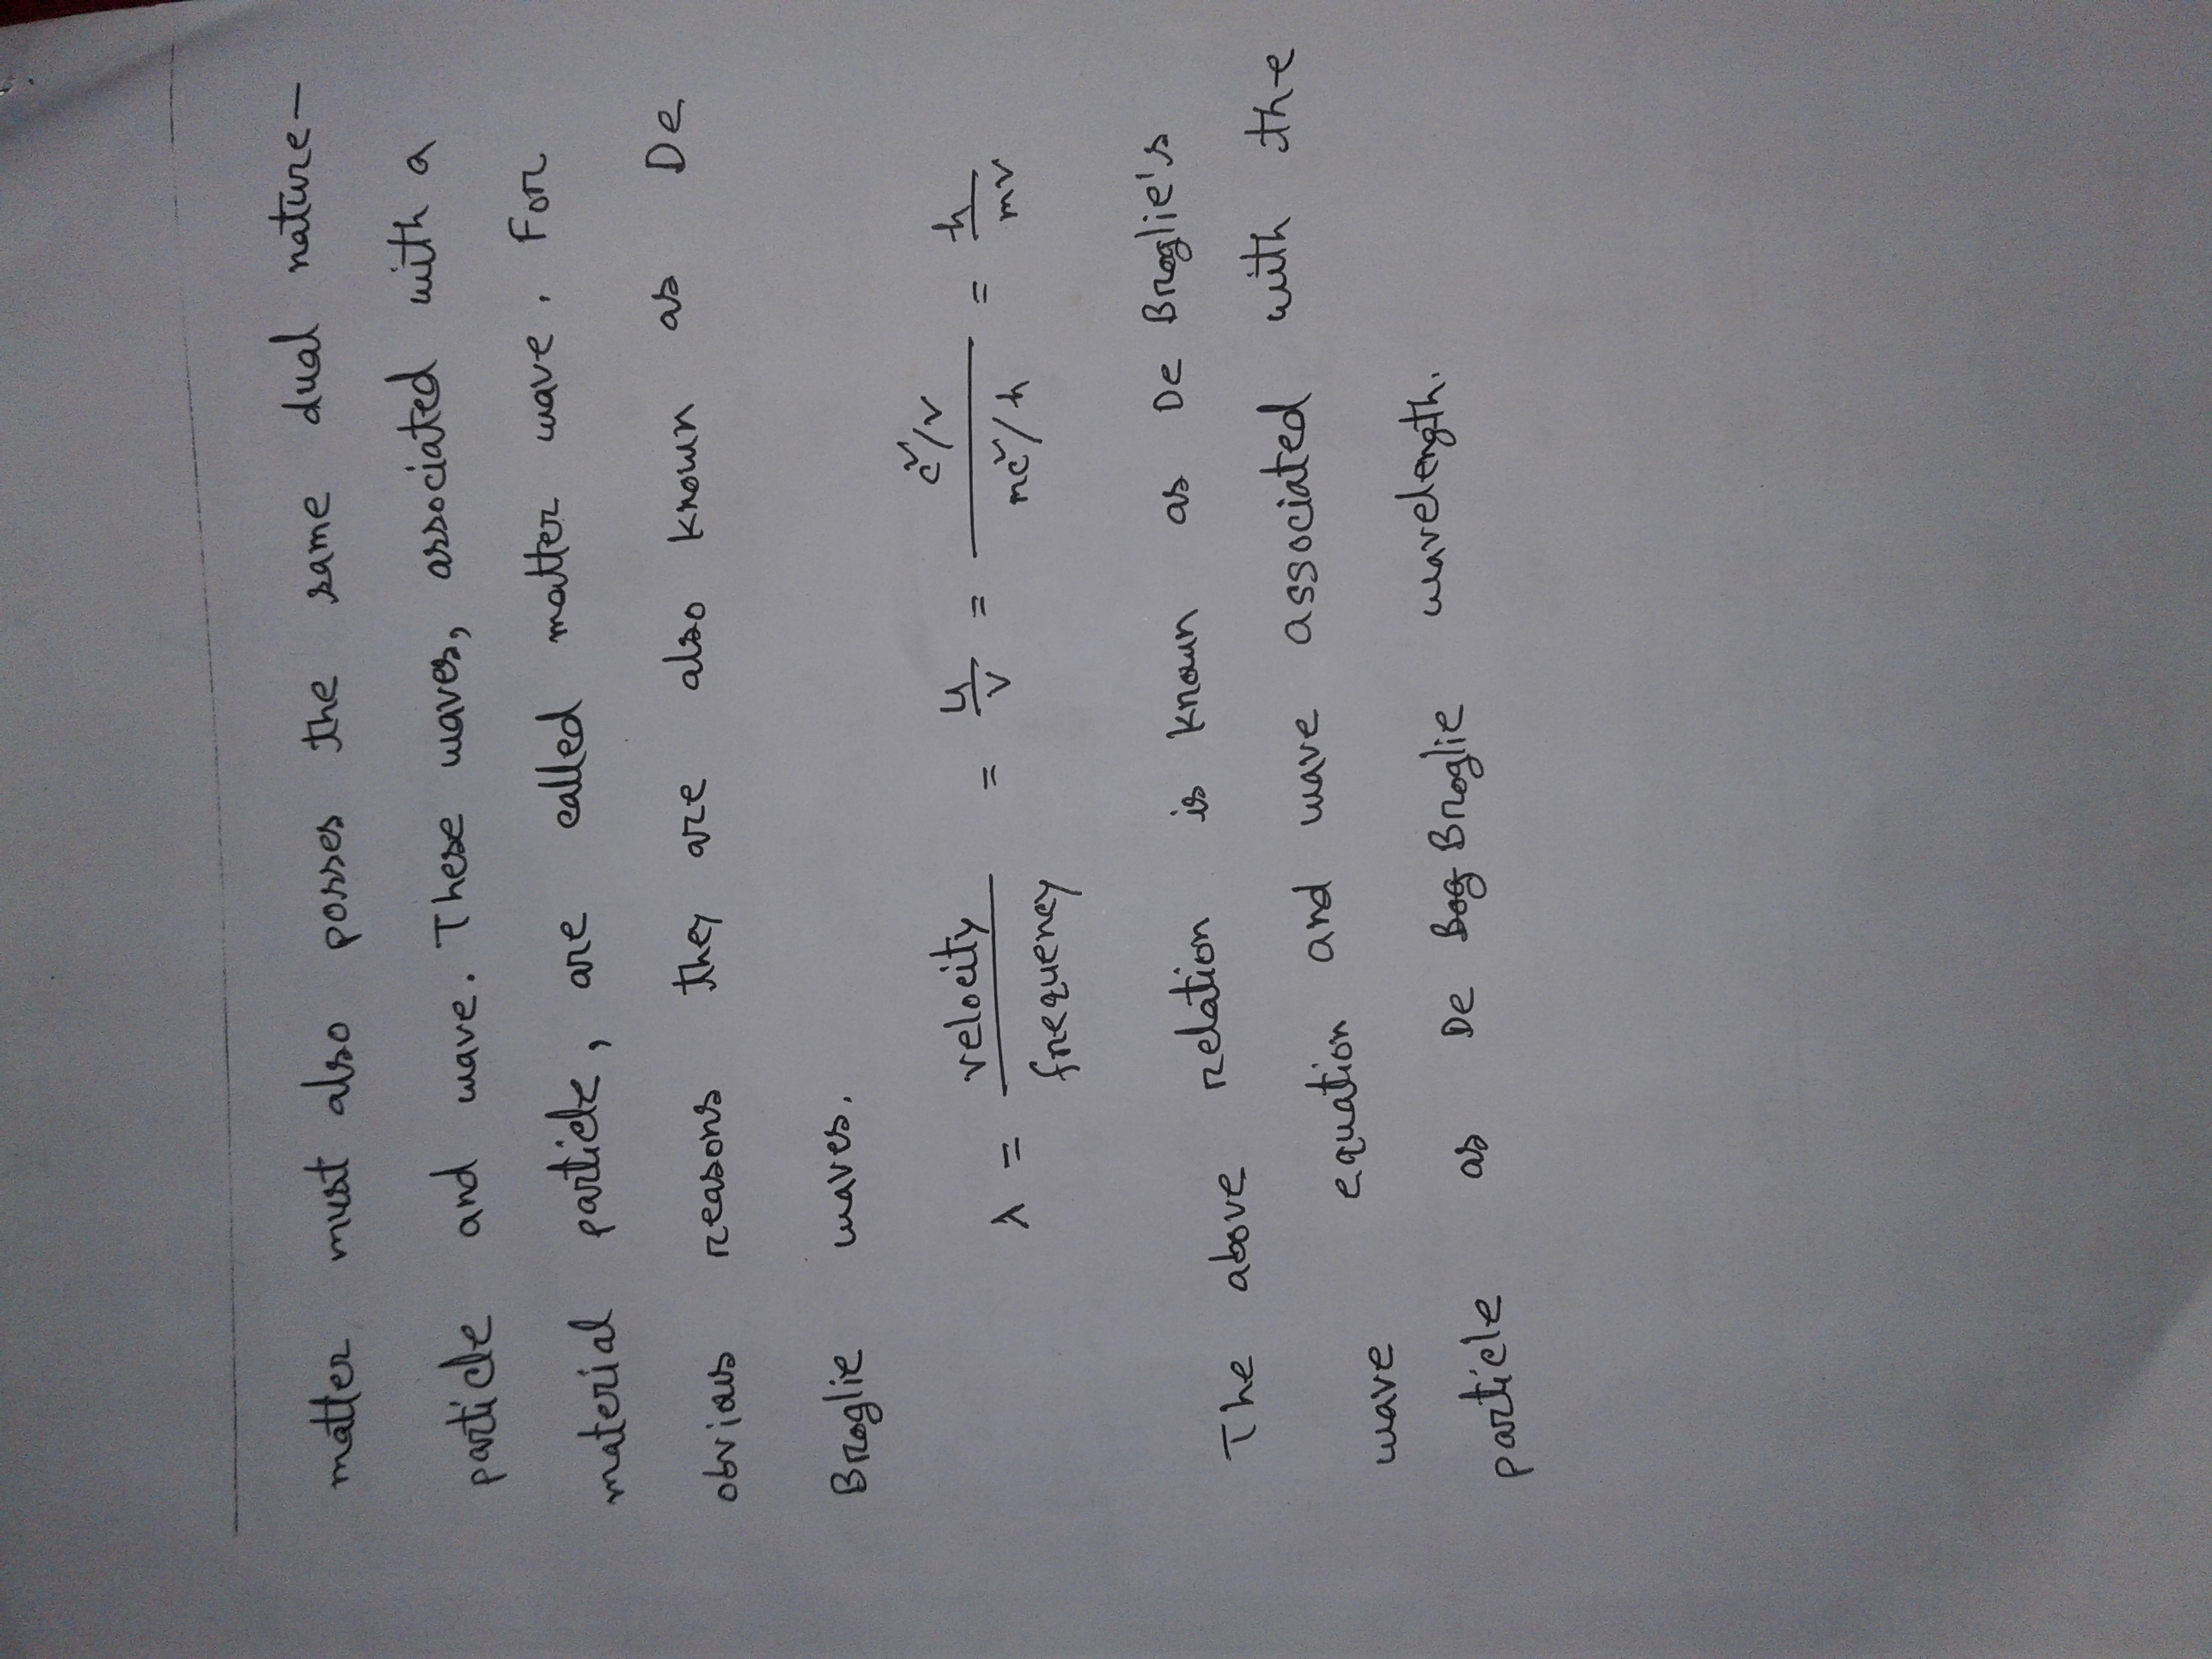 matter must also posses the same dual nature—
particle and wave. These waves, associated with a
material particle, are called matter wave. For
obvious reasons they are also known as De
Broglie waves.
λ = velocity/frequency = u/v = (c²/v)/(mc²/h) = h/mv
The above relation is known as De Broglie's
wave equation and wave associated with the
particle as De Bog Broglie wavelength.